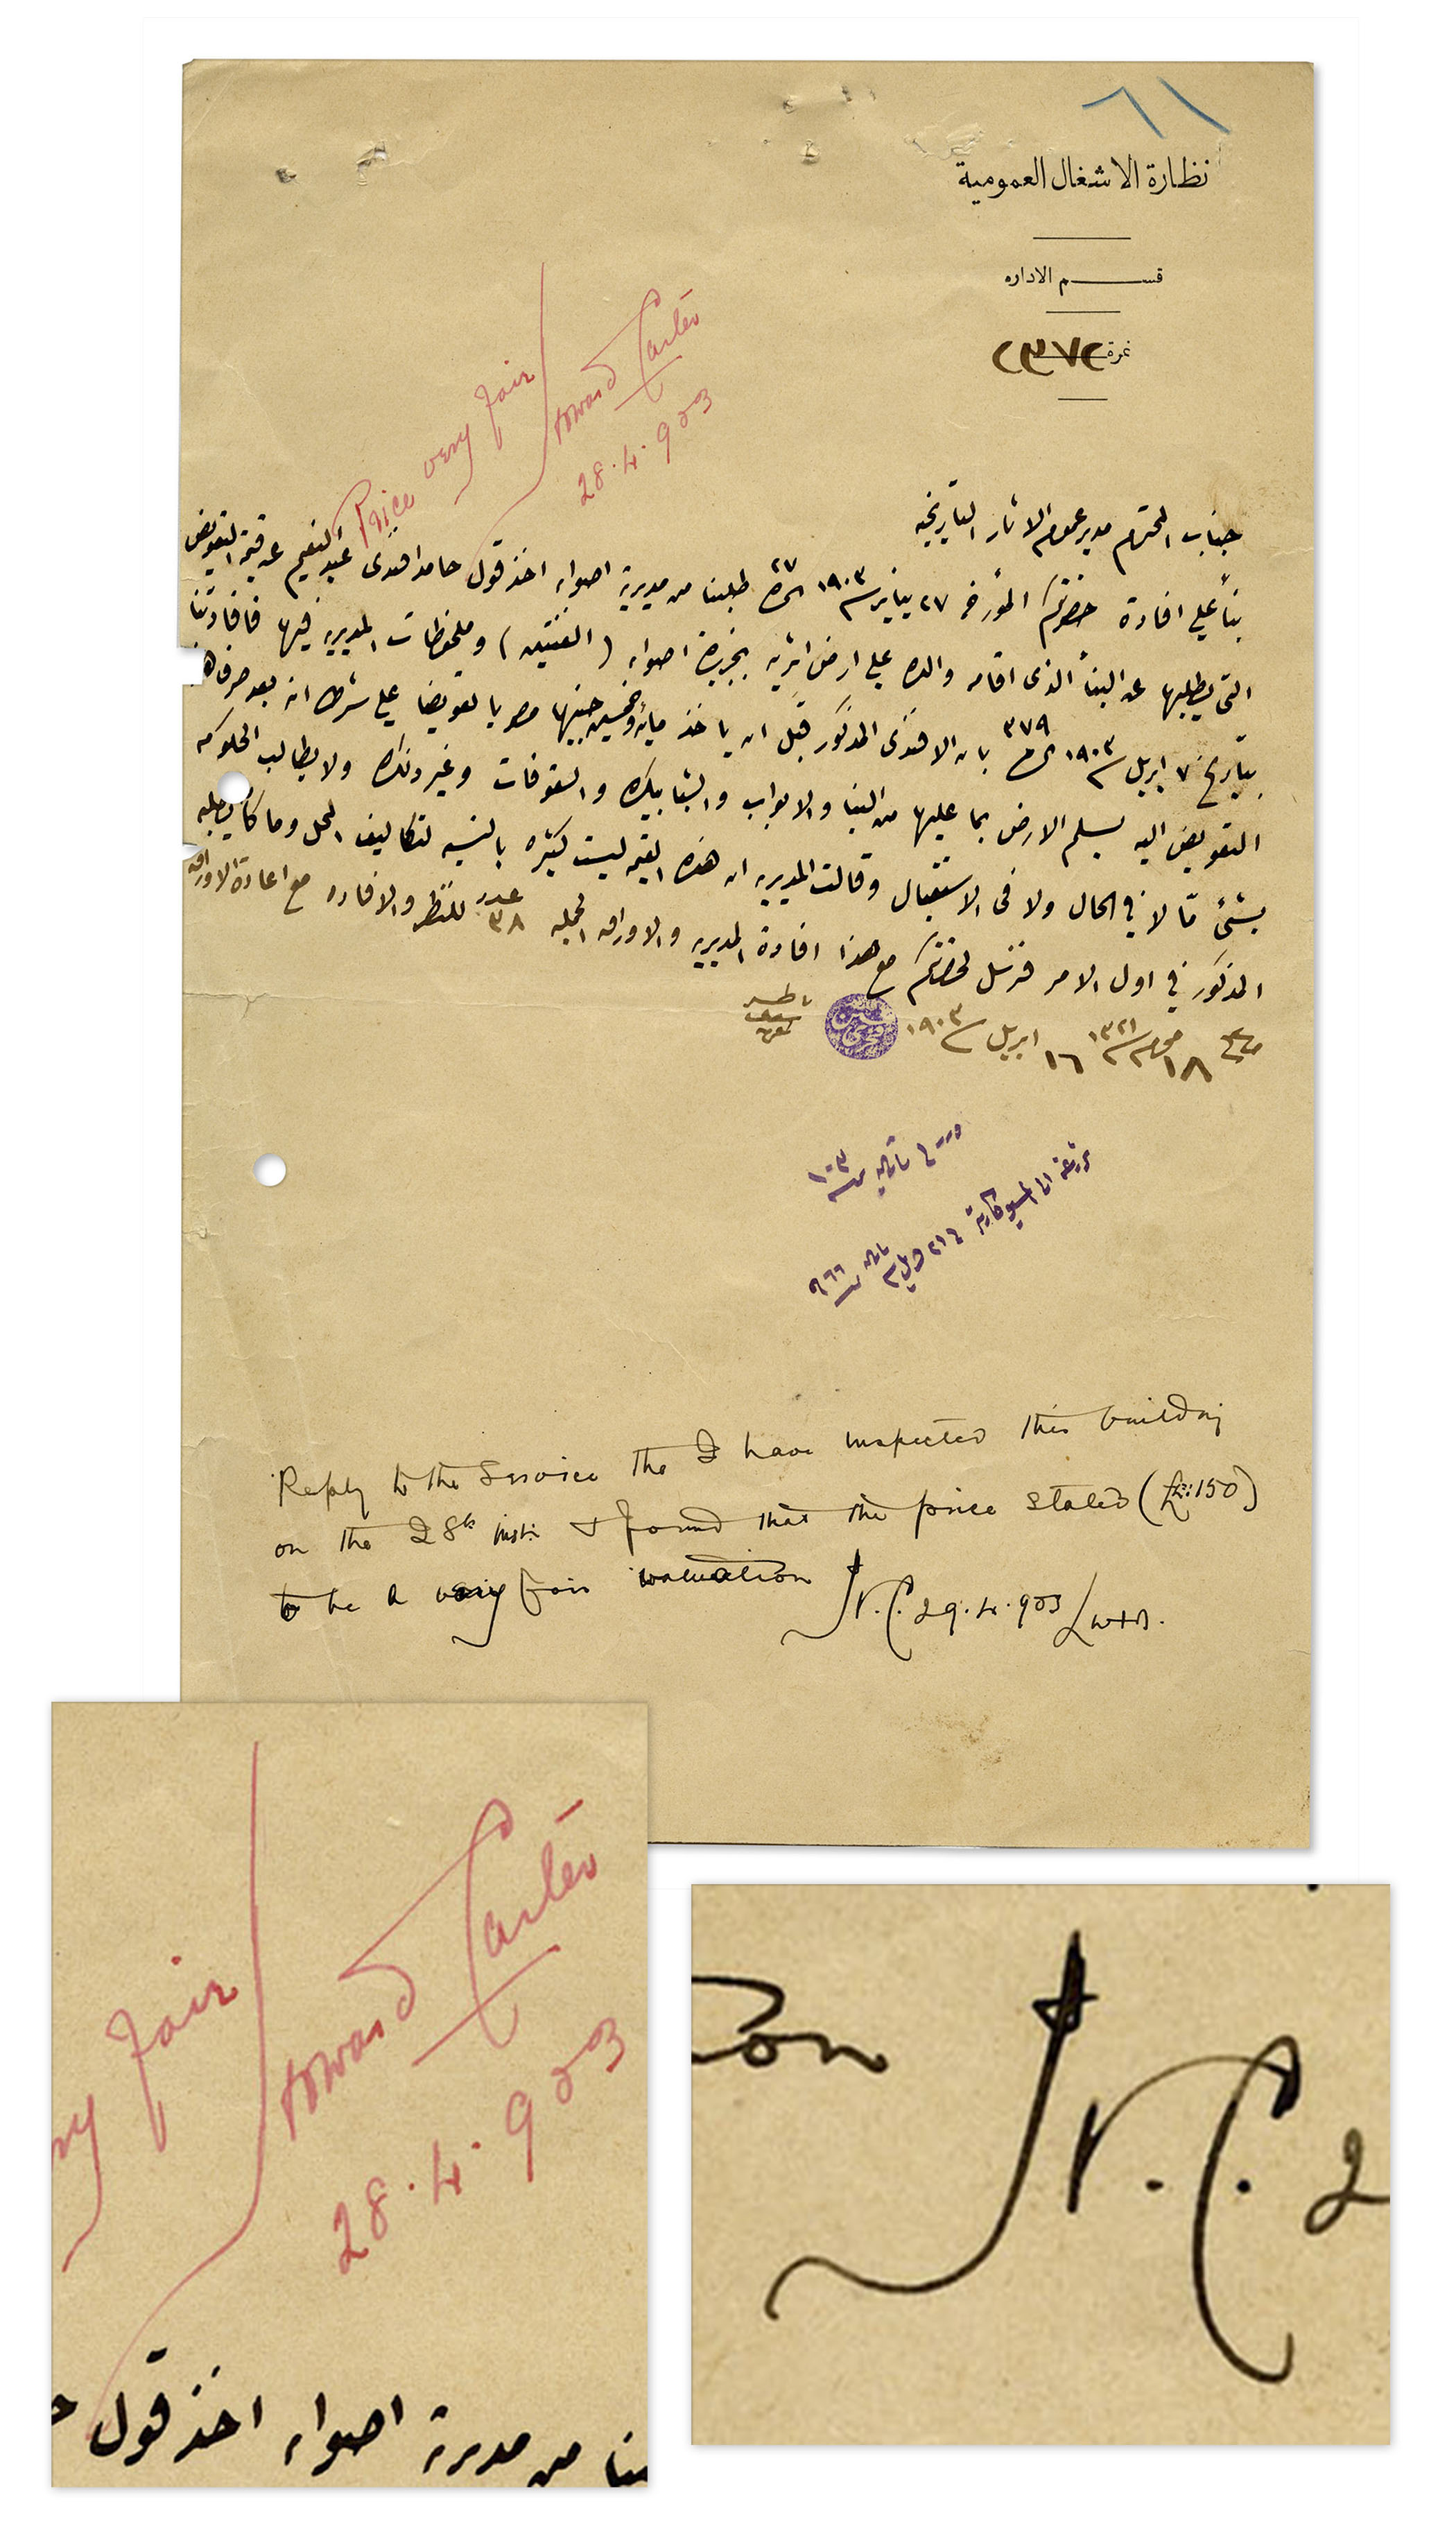 ٦١
نظارة الاشغال العمومية
قسم الاداره
نمرة ٢٣٧٢
Price very fair
Howard Carter
28.4.903
جناب المحترم مدير عموم الاثار التاريخيه
بنأً علي افادة حضرتكم المؤرخه ٢٧ يناير سنة ١٩٠٣ نمرة ٢٧ طلبنا من مديرية اصوان اخذ قول حامد افندى عبد النعيم عن قيمة التعويض
التي يطلبها عن البنأ الذى اقامه والده علي ارض اثريه بجزيرة اصوان (الفنتين) وملحوظات المديريه فيها فافادتنا
بتاريخ ٧ ابريل سنة ١٩٠٣ نمرة ٣٧٩ بان الافندى المذكور قبل ان ياخذ مايه وخمسين جنيها مصريا تعويضا علي شرط انه بعد صرف هذا
التعويض اليه يسلم الارض بما عليها من البنا والابواب والشبابيك والسقوفات وغير ذلك ولا يطالب الحكومه
بشئ مّا لا في الحال ولا في الاستقبال وقالت المديريه ان هذه القيمه ليست كثيره بالنسبه لتكاليف المحل وما كان يطلبه
المذكور في اول الامر فنرسل لحضرتكم مع هذا افادة المديريه والاوراق المحليه عدد ٣٨ للنظر والافاده مع اعادة الاوراق
١٨ محرم سنة ١٣٢١ ١٦ ابريل سنة ١٩٠٣
Reply to the Service the I have inspected this building
on the 28th inst: & found that the price stated (£E:150)
to be a very fair valuation H.C. 29.4.903
ry fair
Howard Carter
28.4.903
نا من مديرية اصوان اخذ قول
ion H.C. 2